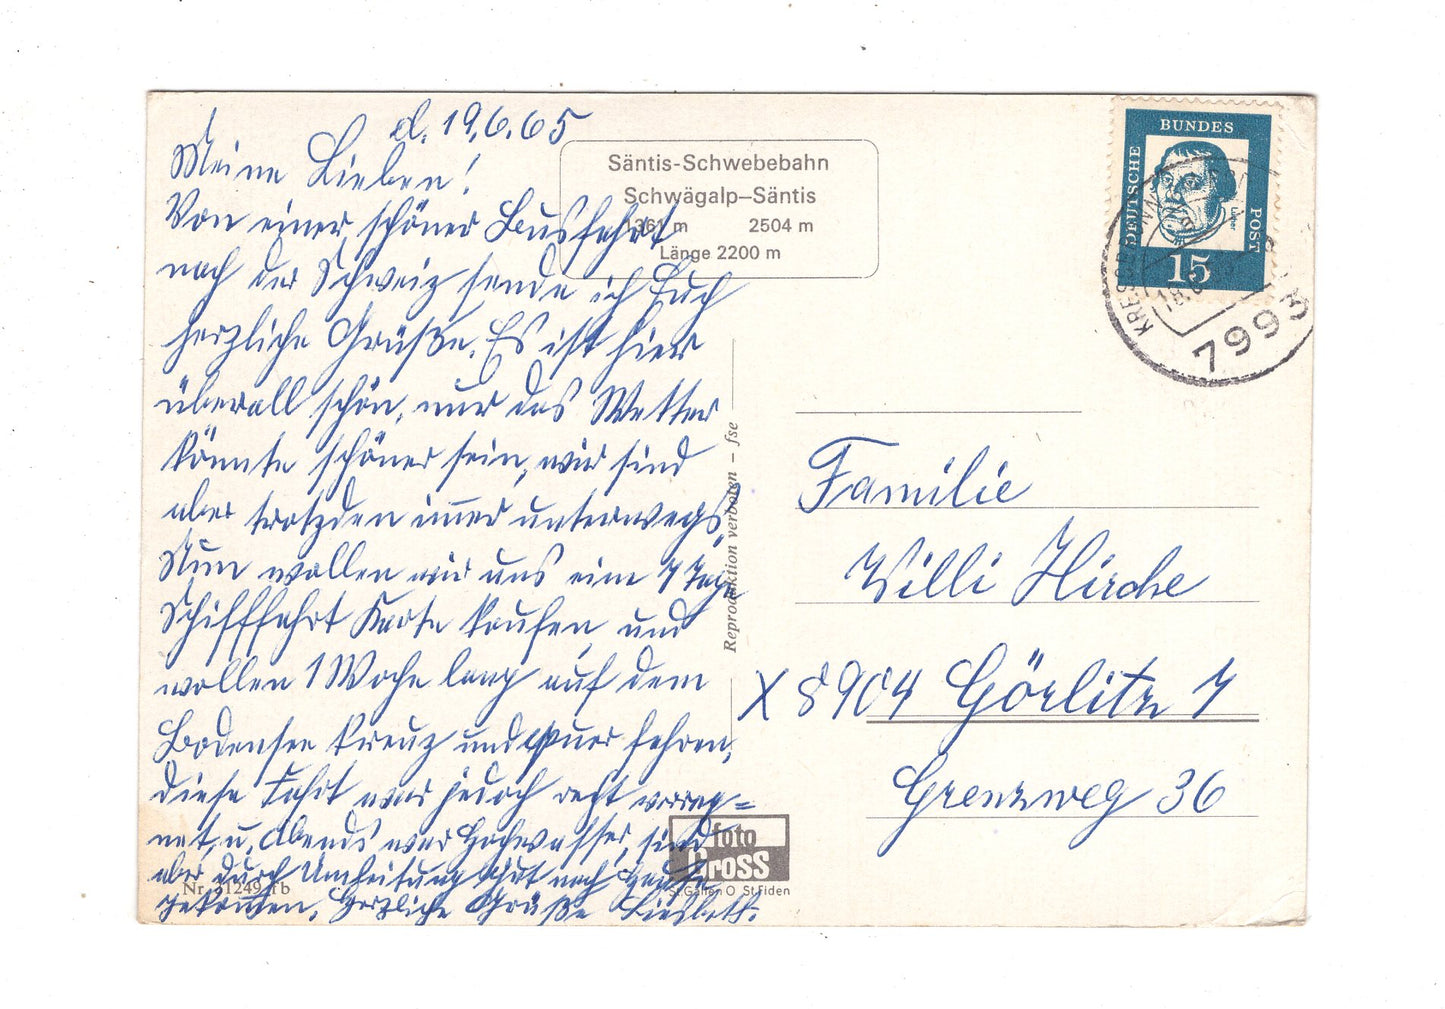 d. 19.6.65
Meine Lieben!
Von einer schönen Busfahrt
nach der Schweiz sende ich Euch
herzliche Grüße. Es ist hier
überall schön, nur das Wetter
könnte schöner sein, wir sind
aber trotzden immer unterwegs.
Nun wollen wir uns eine 7 Tage
Schifffahrt Karte kaufen, und
wollen 1 Woche lang auf dem
Bodensee kreuz und quer fahren,
diese Fahrt war jedoch recht verreg=
net, u. Abends war Hochwasser, sind
aber durch Umleitung gut nach Hause
gekommen. Herzliche Grüße Liesbeth.
Säntis-Schwebebahn
Schwägalp–Säntis
1361 m 2504 m
Länge 2200 m
Reproduktion verboten – fse
Nr. 31249 fb
foto
Gross
St.Gallen O St.Fiden
DEUTSCHE BUNDES POST
15
7993
Familie
Willi Hirche
X 8904 Görlitz 7
Grenzweg 36